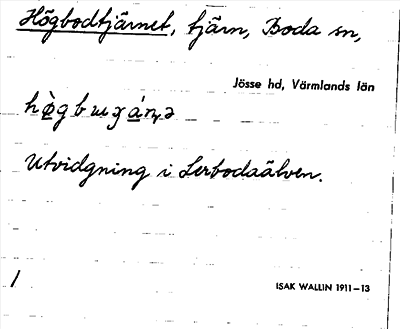 Högbodtjärnet, tjärn, Boda sn,
Jösse hd, Värmlands län
Utvidgning i Lerbodaälven.
/
ISAK WALLIN 1911—13